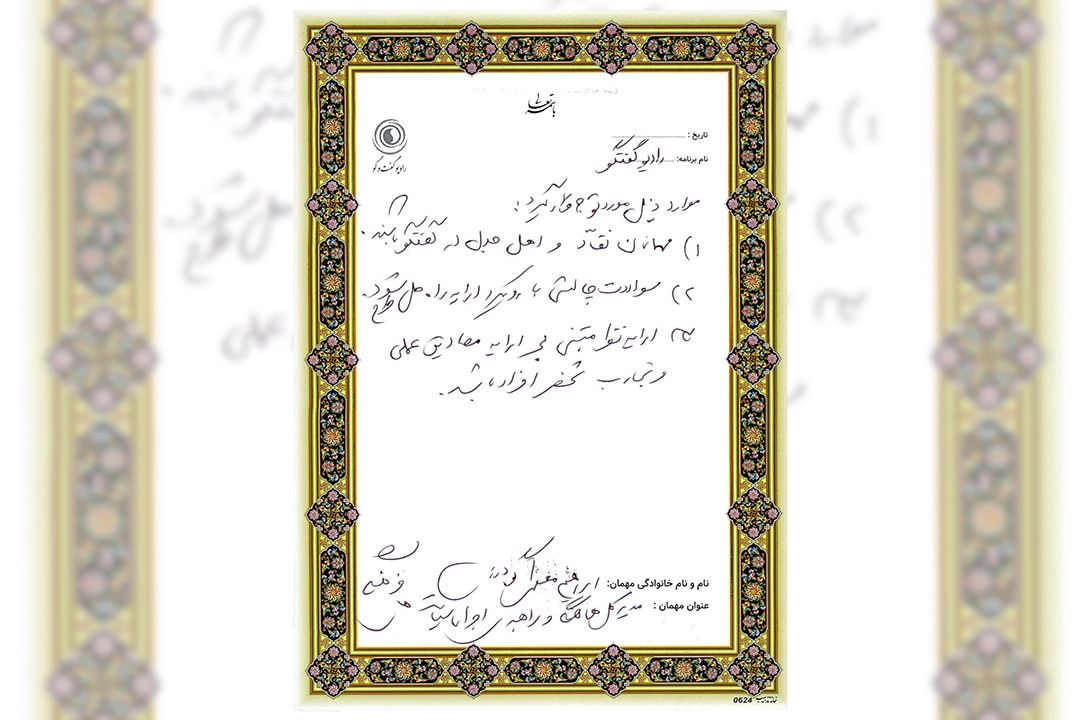 باسمه تعالی
تاریخ :
نام برنامه: رادیو گفتگو
رادیو گفت و گو
موارد ذیل مورد توجه قرار گیرد :
۱) مهمانان نقّاد و اهل جدل در گفتگو باشند.
۲) سوالات چالشی با رویکرد ارایه راه حل طرح شود.
۳) ارایه نقد مبتنی بر ارایه مصادیق عملی
و تجارب شخصی افراد باشد.
نام و نام خانوادگی مهمان:
عنوان مهمان : مدیر کل هماهنگی و راهبری اجرا سیاست
فرهنگی
0624